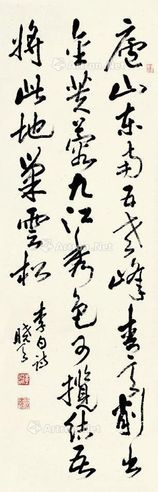 廬山东南五老峰青天削出
金芙蓉九江秀色可攬结吾
將此地巢雲松
李白詩